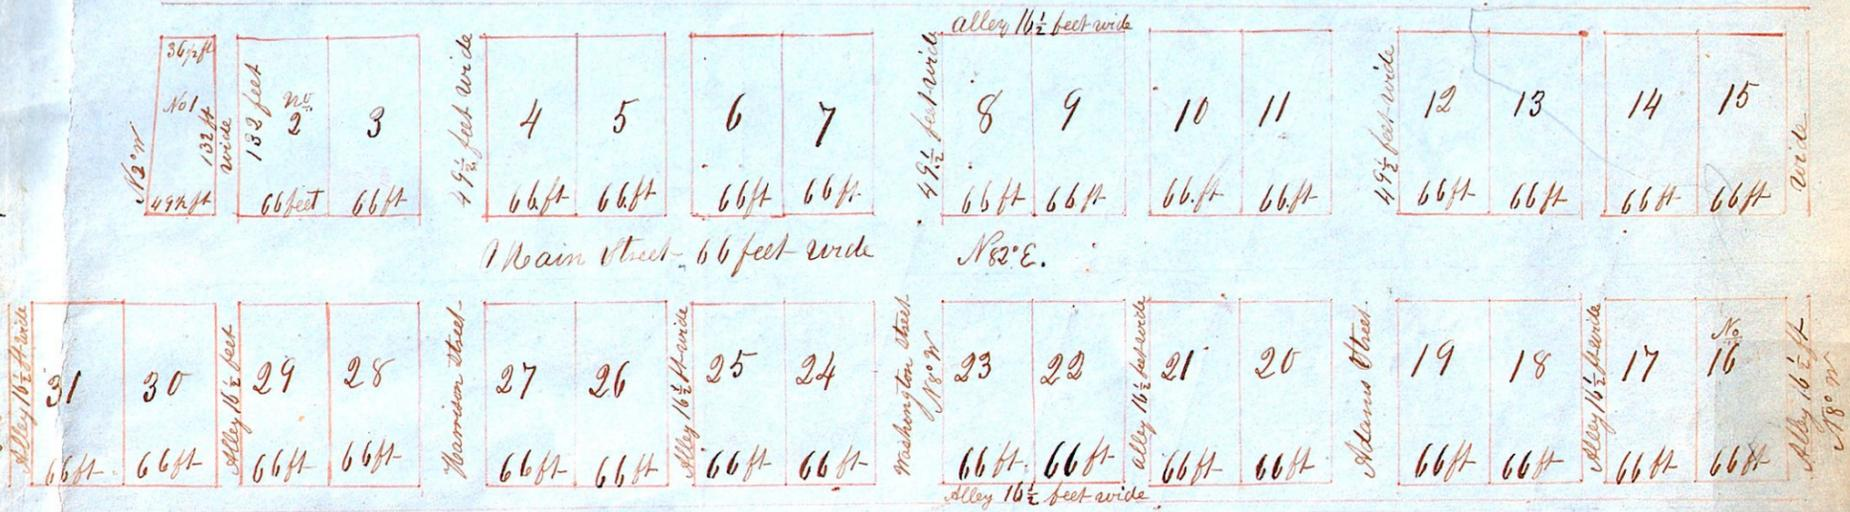 alley 16½ feet wide
36½ ft
No 1
132 ft
wide
49½ ft
N 2° W
132 feet
no. 2
66 feet
3
66 ft
49½ feet wide
4
66 ft
5
66 ft
6
66 ft
7
66 ft
49½ feet wide
8
66 ft
9
66 ft
10
66 ft
11
66 ft
49½ feet wide
12
66 ft
13
66 ft
14
66 ft
15
66 ft
wide
Main Street 66 feet wide N 82° E.
Alley 16½ ft wide
31
66 ft
30
66 ft
Alley 16½ feet
29
66 ft
28
66 ft
Harrison Street
27
66 ft
26
66 ft
Alley 16½ ft wide
25
66 ft
24
66 ft
Washington Street
N 8° W
23
66 ft
22
66 ft
alley 16½ feet wide
21
66 ft
20
66 ft
Adams Street.
19
66 ft
18
66 ft
Alley 16½ ft wide
17
66 ft
No 16
66 ft
Alley 16½ ft
N 8° W
Alley 16½ feet wide